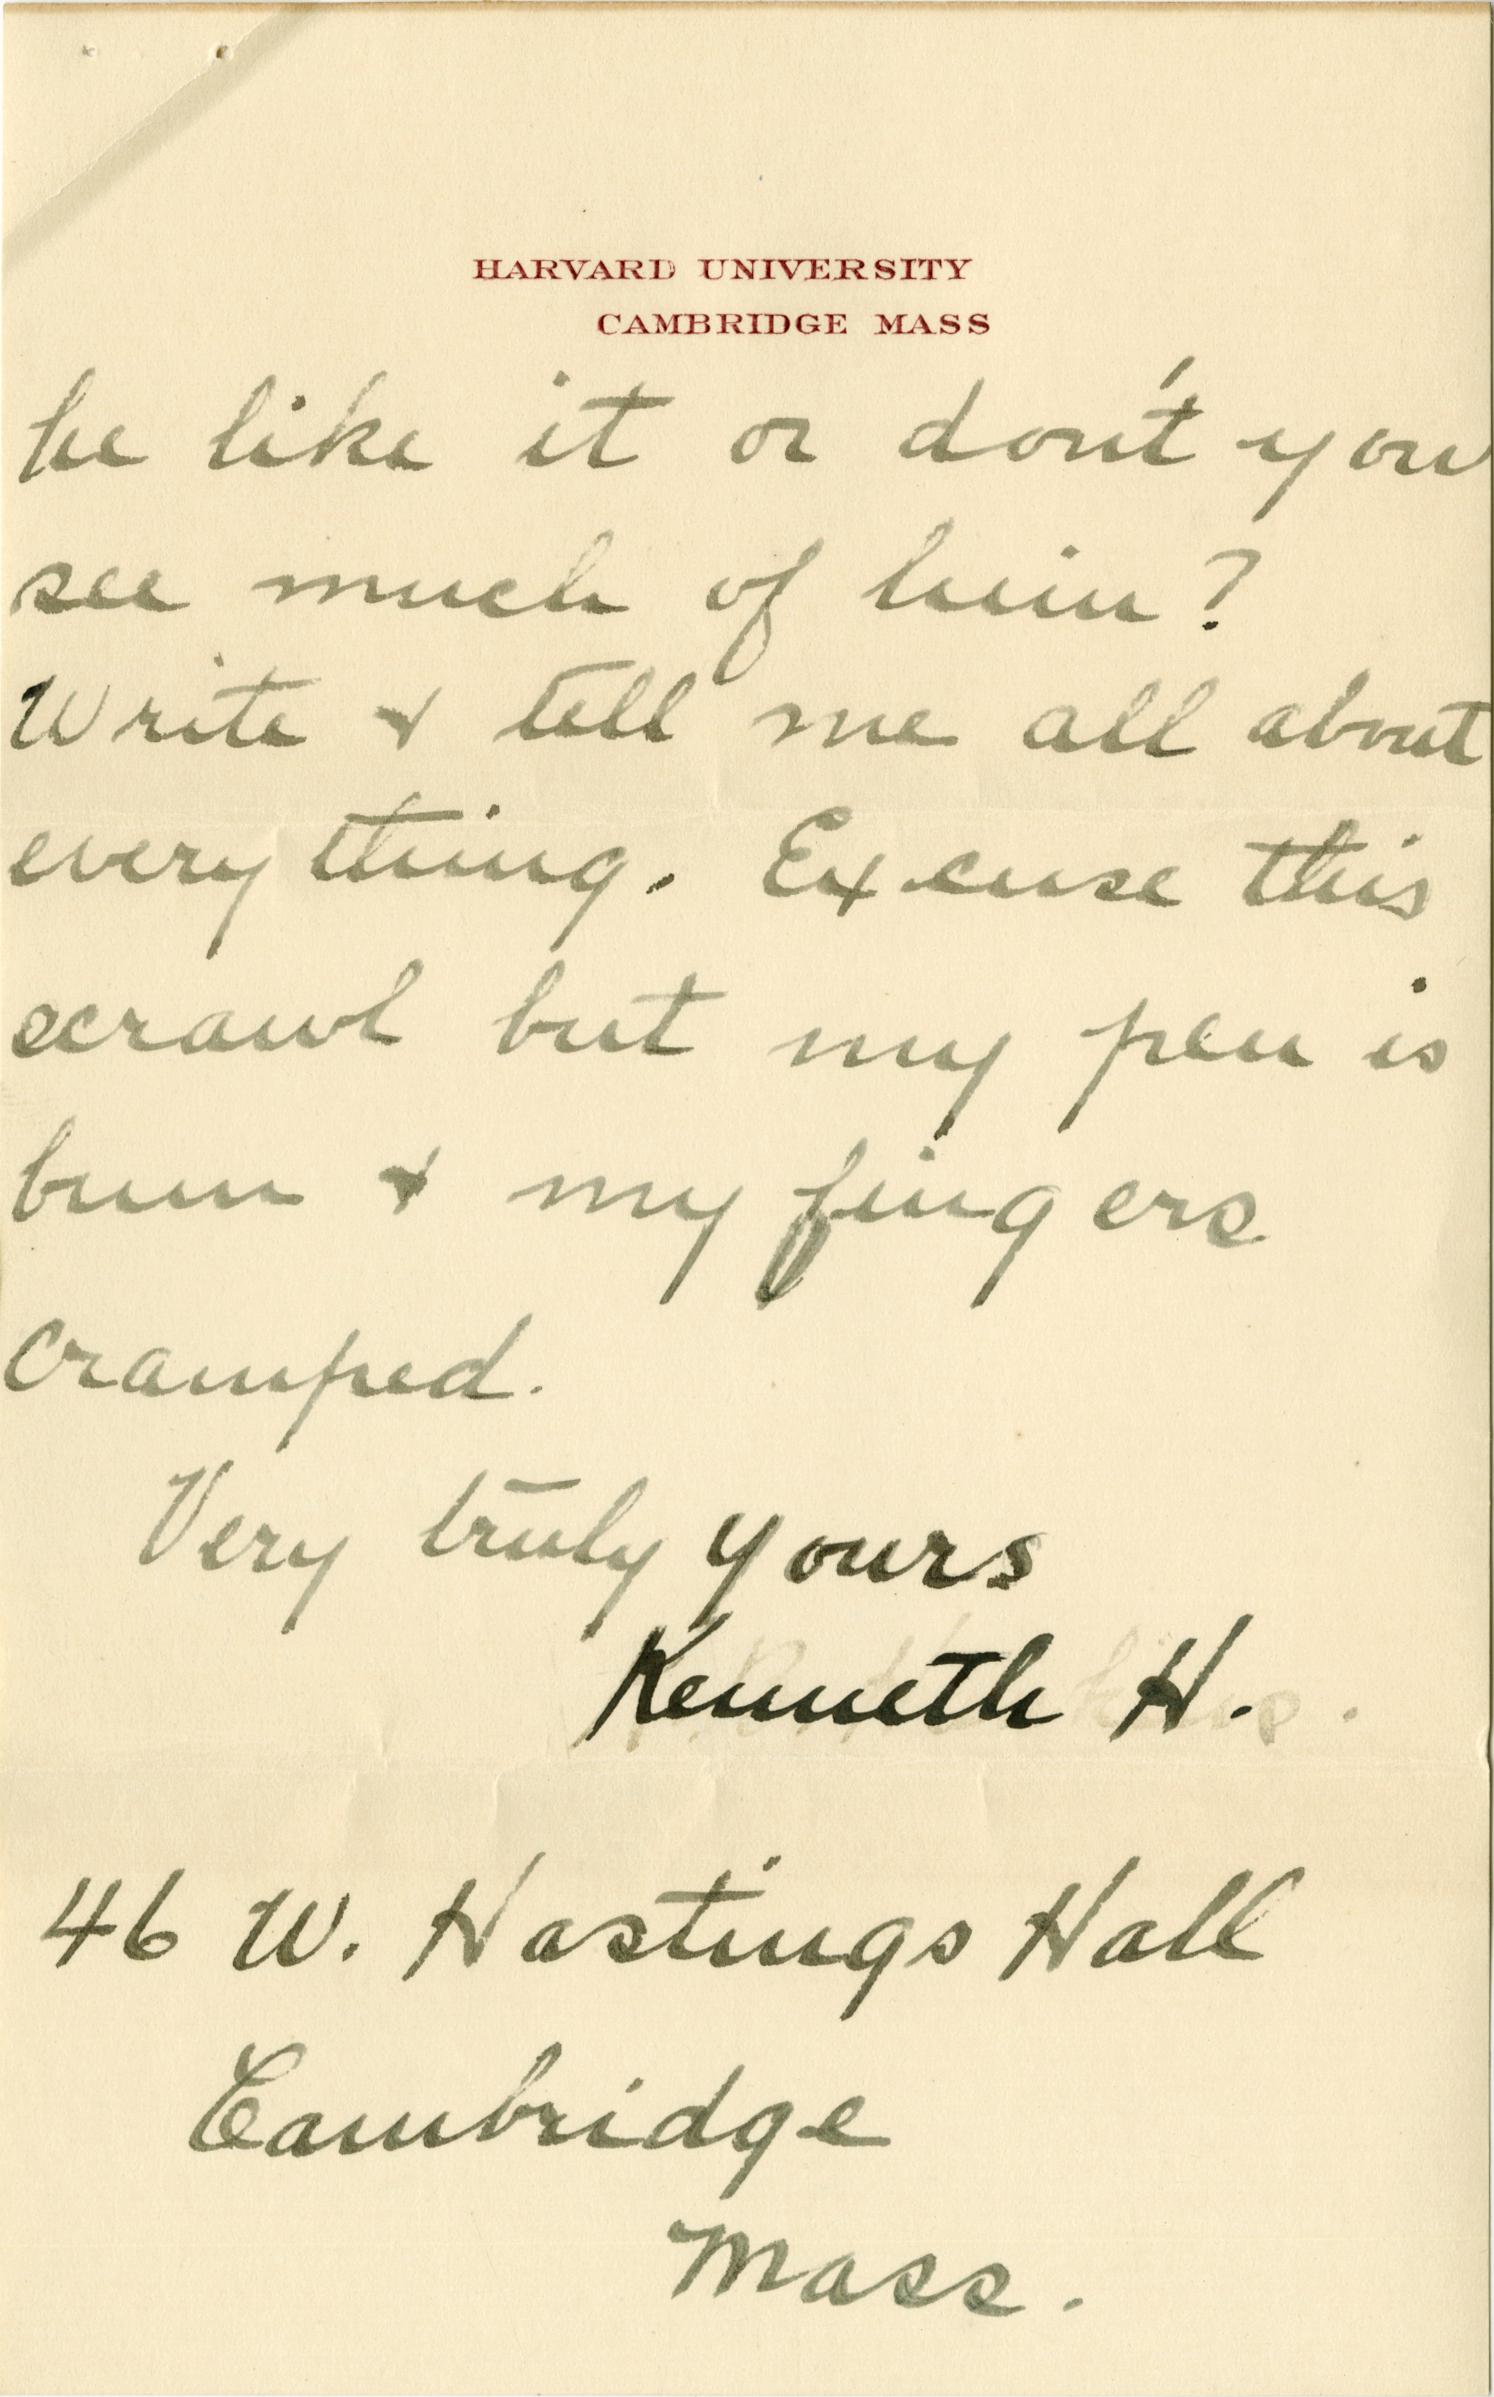 HARVARD UNIVERSITY
CAMBRIDGE MASS
he like it or don't you
see much of him?
Write & tell me all about
everything. Excuse this
scrawl but my pen is
bum & my fingers
cramped.
Very truly yours
Kenneth H.
46 W. Hastings Hall
Cambridge
Mass.